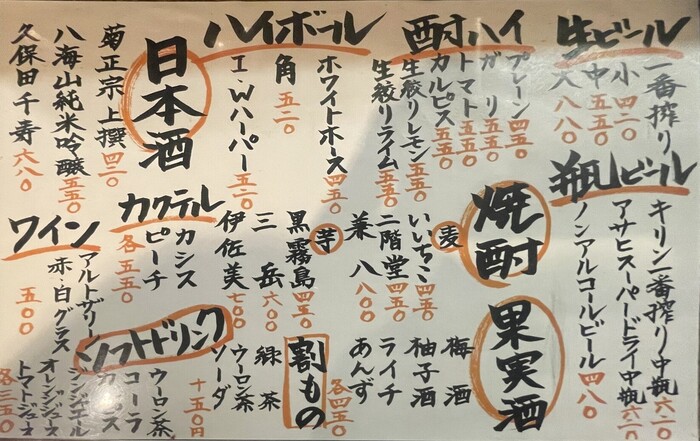 生ビール
一番搾り
小 四二〇
中 五五〇
大 八八〇
瓶ビール
キリン一番搾り中瓶 六二〇
アサヒスーパードライ中瓶 六二〇
ノンアルコールビール 四八〇
酎ハイ
プレーン 四五〇
ガリ 五五〇
トマト 五五〇
カルピス 五五〇
生絞りレモン 五五〇
生絞りライム 五五〇
ハイボール
ホワイトホース 四五〇
角 五二〇
I・Wハーパー 五二〇
日本酒
菊正宗上撰 四二〇
八海山純米吟醸 五五〇
久保田千寿 六八〇
焼酎
麦
いいちこ 四五〇
二階堂 四五〇
兼八 八〇〇
芋
黒霧島 四五〇
三岳 六〇〇
伊佐美 七〇〇
カクテル
カシス
ピーチ
各五五〇
ワイン
アルトガリーン
赤・白グラス
五〇〇
果実酒
梅酒
柚子酒
ライチ
あんず
各四五〇
割もの
緑茶
ウーロン茶
ソーダ
十五〇円
ソフトドリンク
ウーロン茶
コーラ
カルピス
ジンジャエール
オレンジジュース
トマトジュース
各三五〇